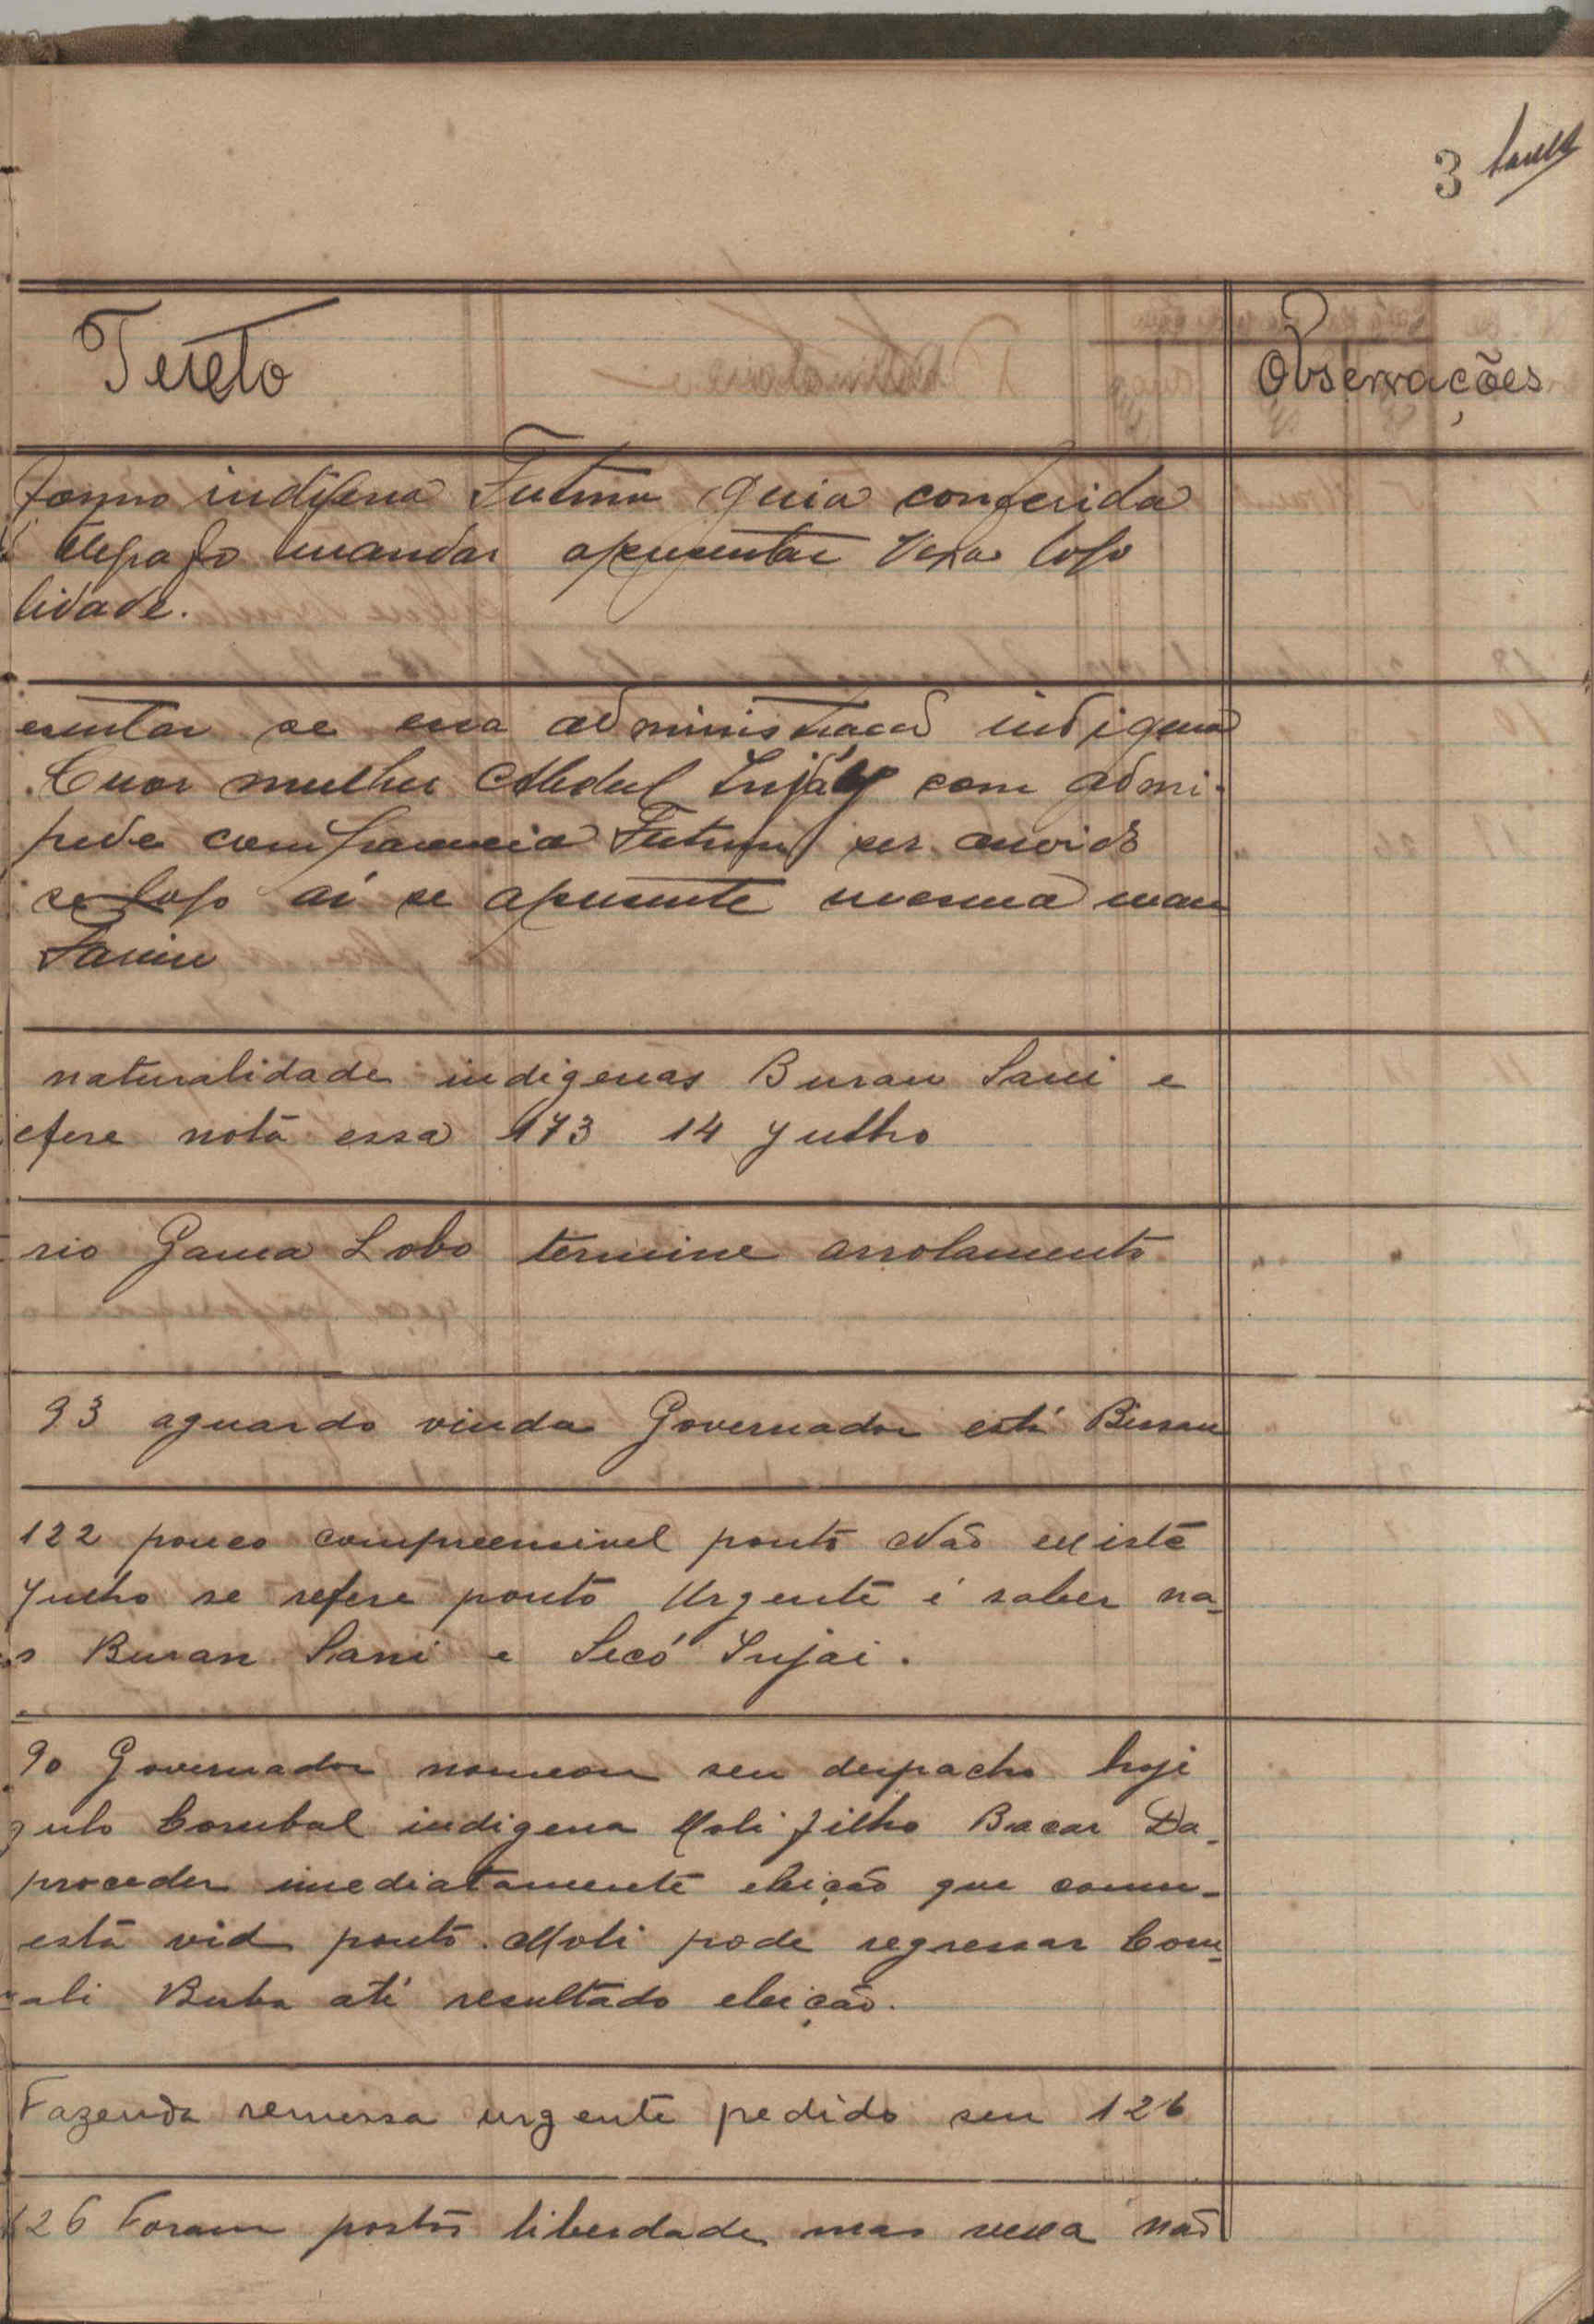 3
Texto
Observações
indigena Futma guia conferida
mandar apresentar Vexa logo
lidade.
esentar se essa administração indigena
Cuor mulher Sujai com admi-
pede comparencia Futma ser ouvido
se logo aí se apresente mesma man
naturalidade indigenas Buran Sani e
efere nota essa 173 14 Julho
rio Gama Lobo termine arrolamento
93 aguardo vinda Governador está Bissau
122 pouco compreensivel ponto Não existe
Julho se refere ponto Urgente é saber na-
s Buran Sani e Secó Sujai.
90 Governador nomeou seu despacho hoje
gulo Corubal indigena Moli filho Bacar Da-
proceder imediatamente eleição que comu-
está vid ponto. Moli pode regressar Coru-
ali Buba até resultado eleição.
Fazenda remessa urgente pedido seu 126
126 Foram postos liberdade mas vexa não